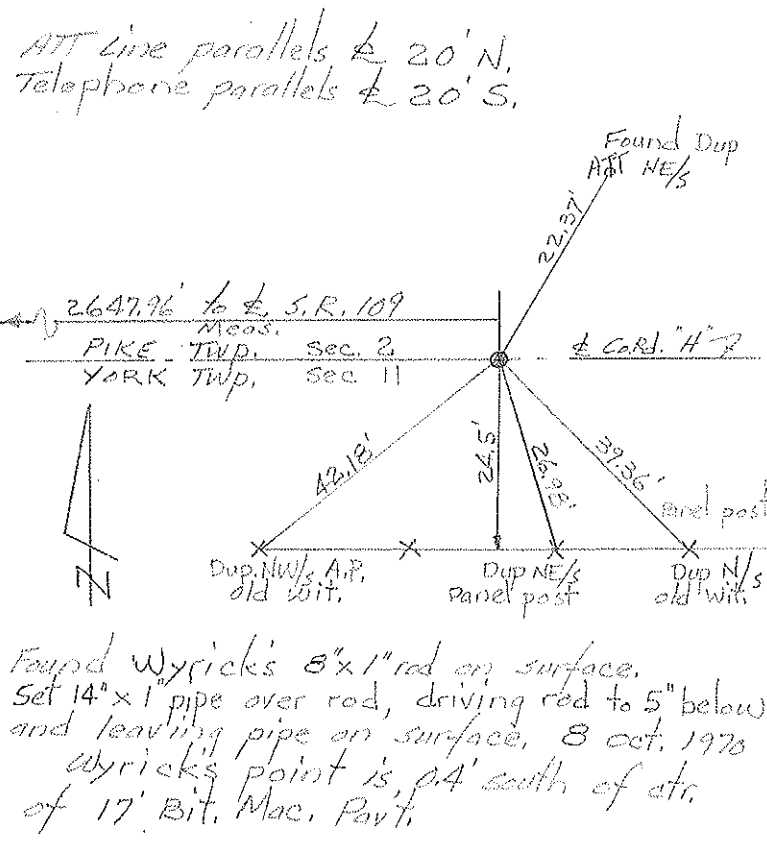 ATT Line parallels ℄ 20' N.
Telephone parallels ℄ 20' S.
Found Dup
ATT NE/s
22.37'
2647.96' to ℄ S.R. 109
Meas.
PIKE Twp. Sec. 2
YORK Twp. Sec 11
℄ Co.Rd. "H"
42.18'
24.5'
26.98'
39.36'
Panel post
N
Dup. NW/s A.P.
old wit.
Dup NE/s
Panel post
Dup N/s
old wit.
Found Wyrick's 8"x1" rod on surface.
Set 14"x1" pipe over rod, driving rod to 5" below
and leaving pipe on surface. 8 Oct. 1970
Wyrick's point is 0.4' south of ctr.
of 17' Bit. Mac. Pavt.